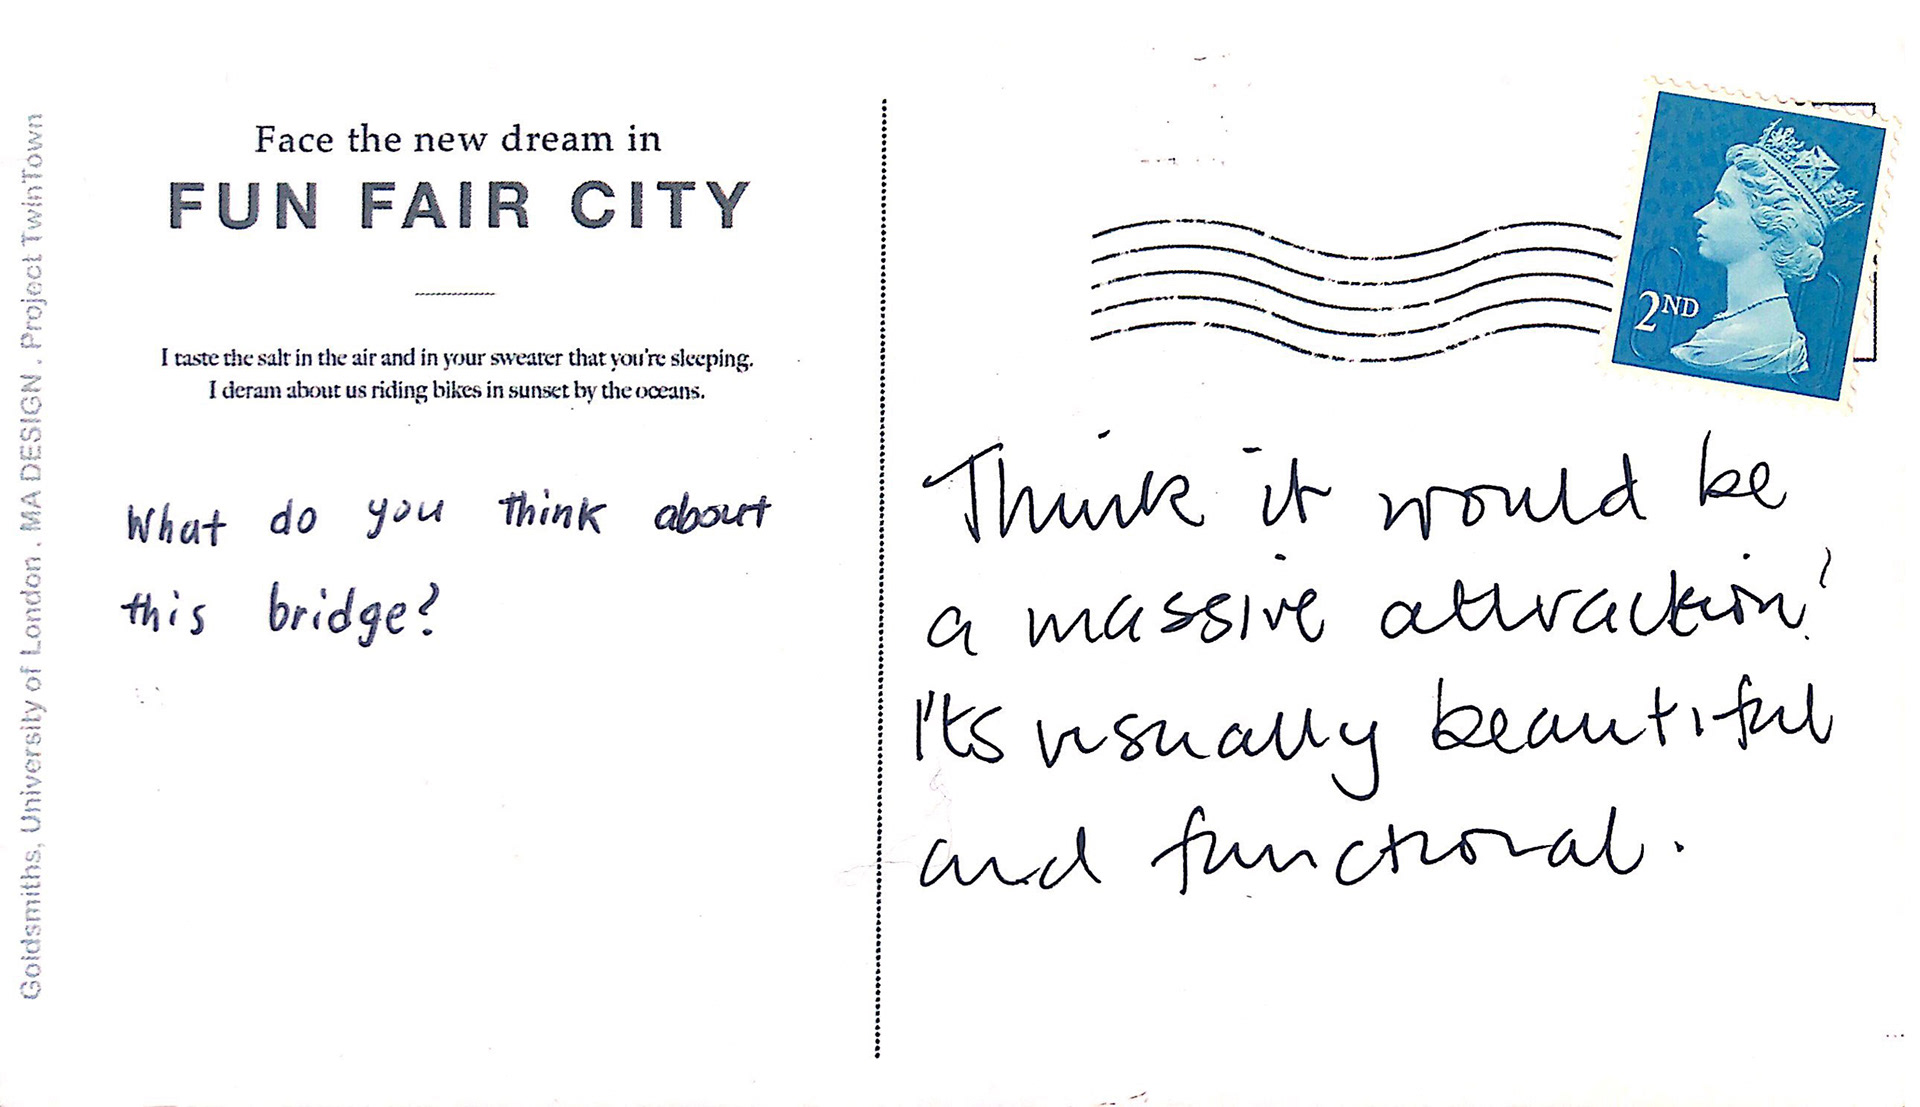 Goldsmiths, University of London . MA DESIGN . Project TwinTown
Face the new dream in
FUN FAIR CITY
I taste the salt in the air and in your sweater that you're sleeping.
I deram about us riding bikes in sunset by the oceans.
What do you think about
this bridge?
2ND
Think it would be
a massive attraction!
It's visually beautiful
and functional.